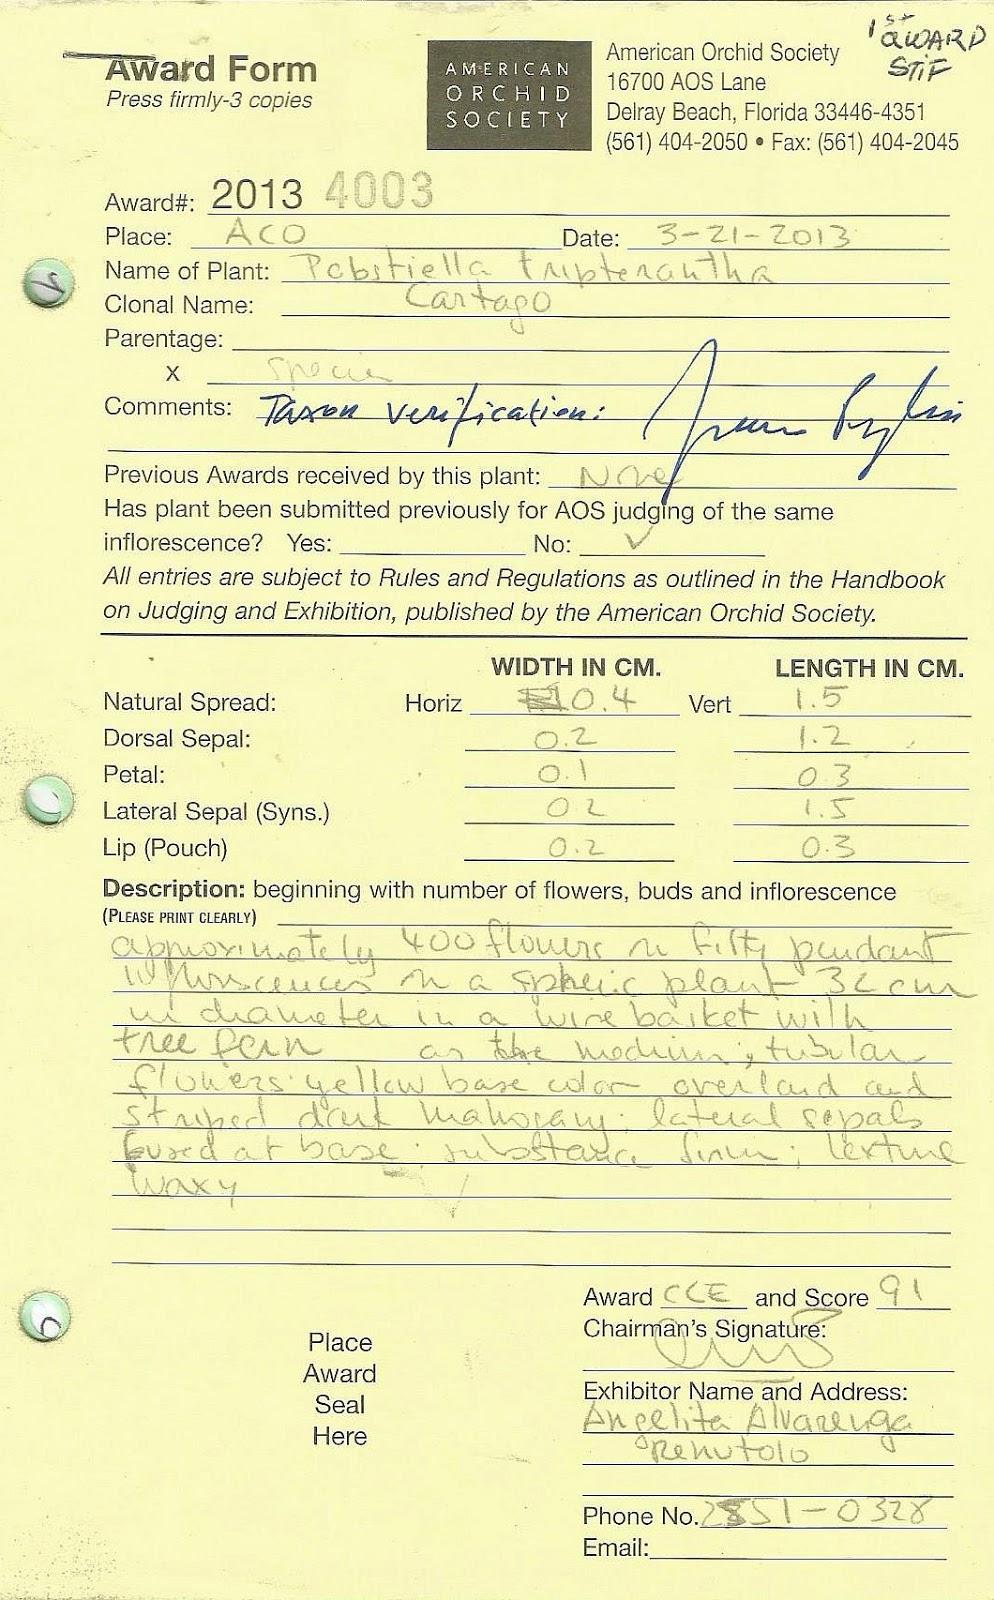 1st AWARD
STIF
Award Form
Press firmly-3 copies
AMERICAN
ORCHID
SOCIETY
American Orchid Society
16700 AOS Lane
Delray Beach, Florida 33446-4351
(561) 404-2050 • Fax: (561) 404-2045
Award#: 2013 4003
Place: ACO Date: 3-21-2013
Name of Plant: Pabstiella tripterantha
Clonal Name: Cartago
Parentage:
X species
Comments: Taxon verification:
Previous Awards received by this plant: None
Has plant been submitted previously for AOS judging of the same
inflorescence? Yes: No: ✓
All entries are subject to Rules and Regulations as outlined in the Handbook
on Judging and Exhibition, published by the American Orchid Society.
WIDTH IN CM. LENGTH IN CM.
Natural Spread: Horiz 0.4 Vert 1.5
Dorsal Sepal: 0.2 1.2
Petal: 0.1 0.3
Lateral Sepal (Syns.) 0.2 1.5
Lip (Pouch) 0.2 0.3
Description: beginning with number of flowers, buds and inflorescence
(PLEASE PRINT CLEARLY)
approximately 400 flowers in fifty pendant
inflorscences in a spheric plant 32 cm
in diameter in a wire basket with
tree fern as the medium; tubular
flowers: yellow base color overlaid and
striped dark mahogany; lateral sepals
fused at base; substance firm; texture
waxy
Award CCE and Score 91
Chairman's Signature:
Place
Award
Seal
Here
Exhibitor Name and Address:
Angelita Alvarenga
Phone No. 2551-0328
Email: